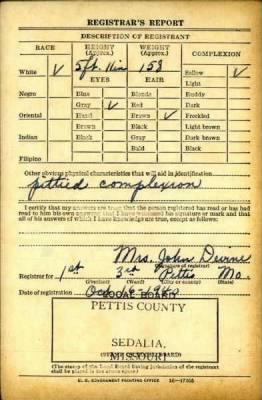 REGISTRAR'S REPORT
DESCRIPTION OF REGISTRANT
RACE HEIGHT (Approx.) WEIGHT (Approx.) COMPLEXION
White ✓ 5 ft. 11 in 158 Sallow ✓
EYES HAIR Light
Negro Blue Blonde Ruddy
Gray ✓ Red Dark
Oriental Hazel Brown ✓ Freckled
Brown Black Light brown
Indian Black Gray Dark brown
Bald Black
Filipino
Other obvious physical characteristics that will aid in identification
pittied complexion
I certify that my answers are true; that the person registered has read or has had
read to him his own answers; that I have witnessed his signature or mark and that
all of his answers of which I have knowledge are true, except as follows:
Mrs. John Devine
(Signature of registrar)
Registrar for 1st 3rd Pettis Mo.
(Precinct) (Ward) (City or county) (State)
Date of registration Oct 16-1940
LOCAL BOARD
PETTIS COUNTY
SEDALIA,
MISSOURI
(The stamp of the Local Board having jurisdiction of the registrant
shall be placed in the above space)
U. S. GOVERNMENT PRINTING OFFICE 16-17105